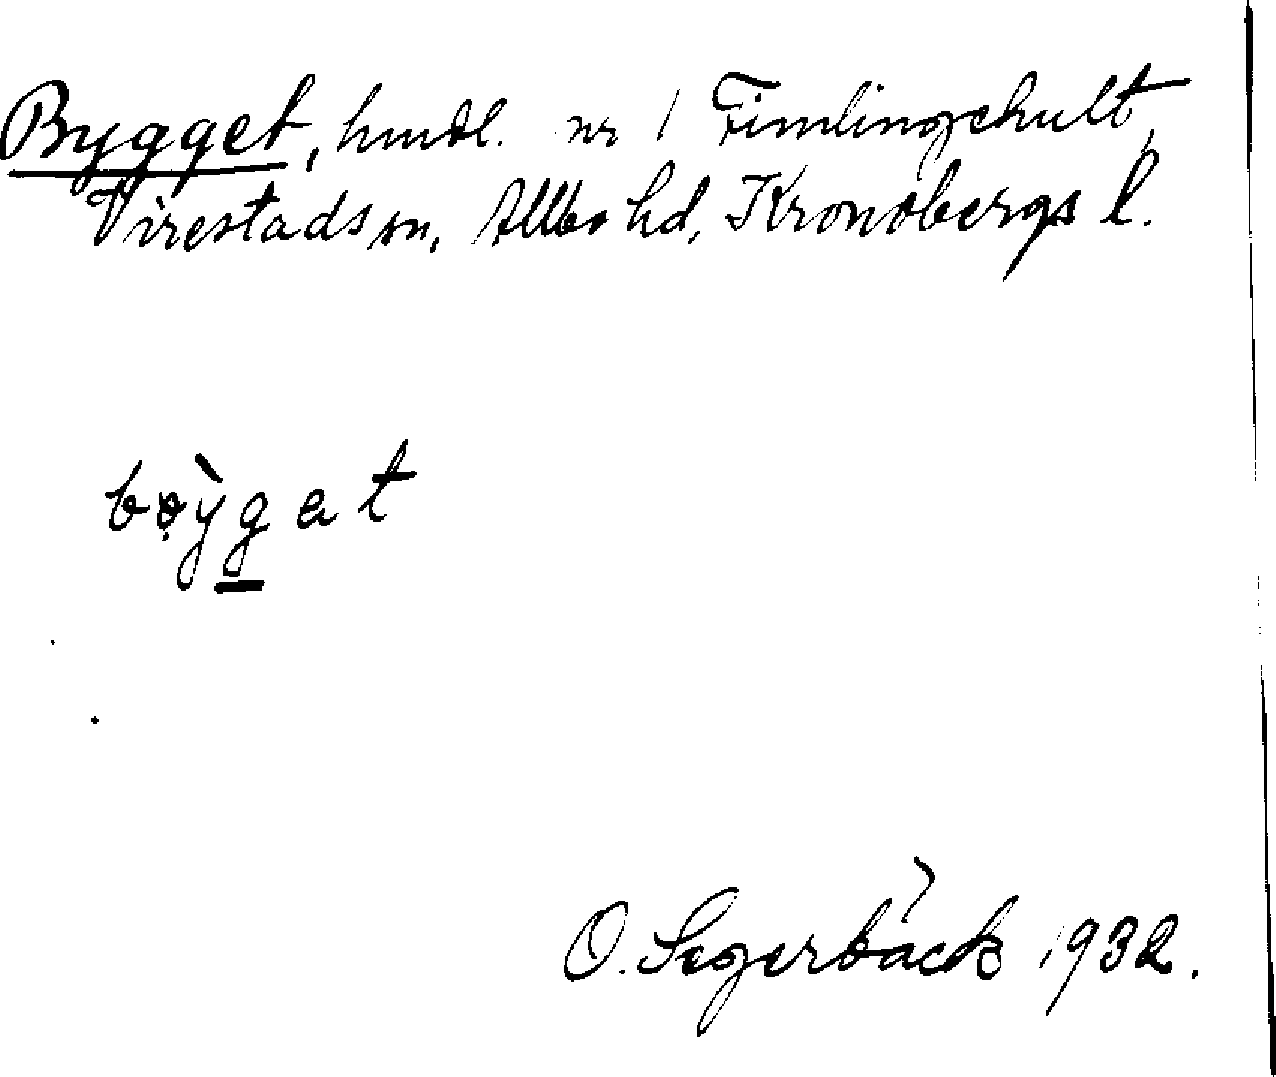 Bygget, hmdl. nr 1 Fimlingehult,
Virestads sn, Allbo hd, Kronobergs l.
bøỳgat
O. Segerbäck 1932.